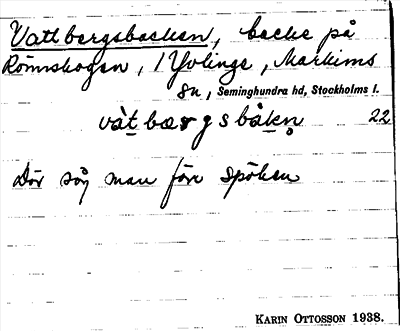 Vattbergsbacken, backe på
Römskogen, i Yvlinge, Markims
sn, Seminghundra hd, Stockholms l.
våt bærgsbakn 22
Där såg man förr spöken
KARIN OTTOSSON 1938.